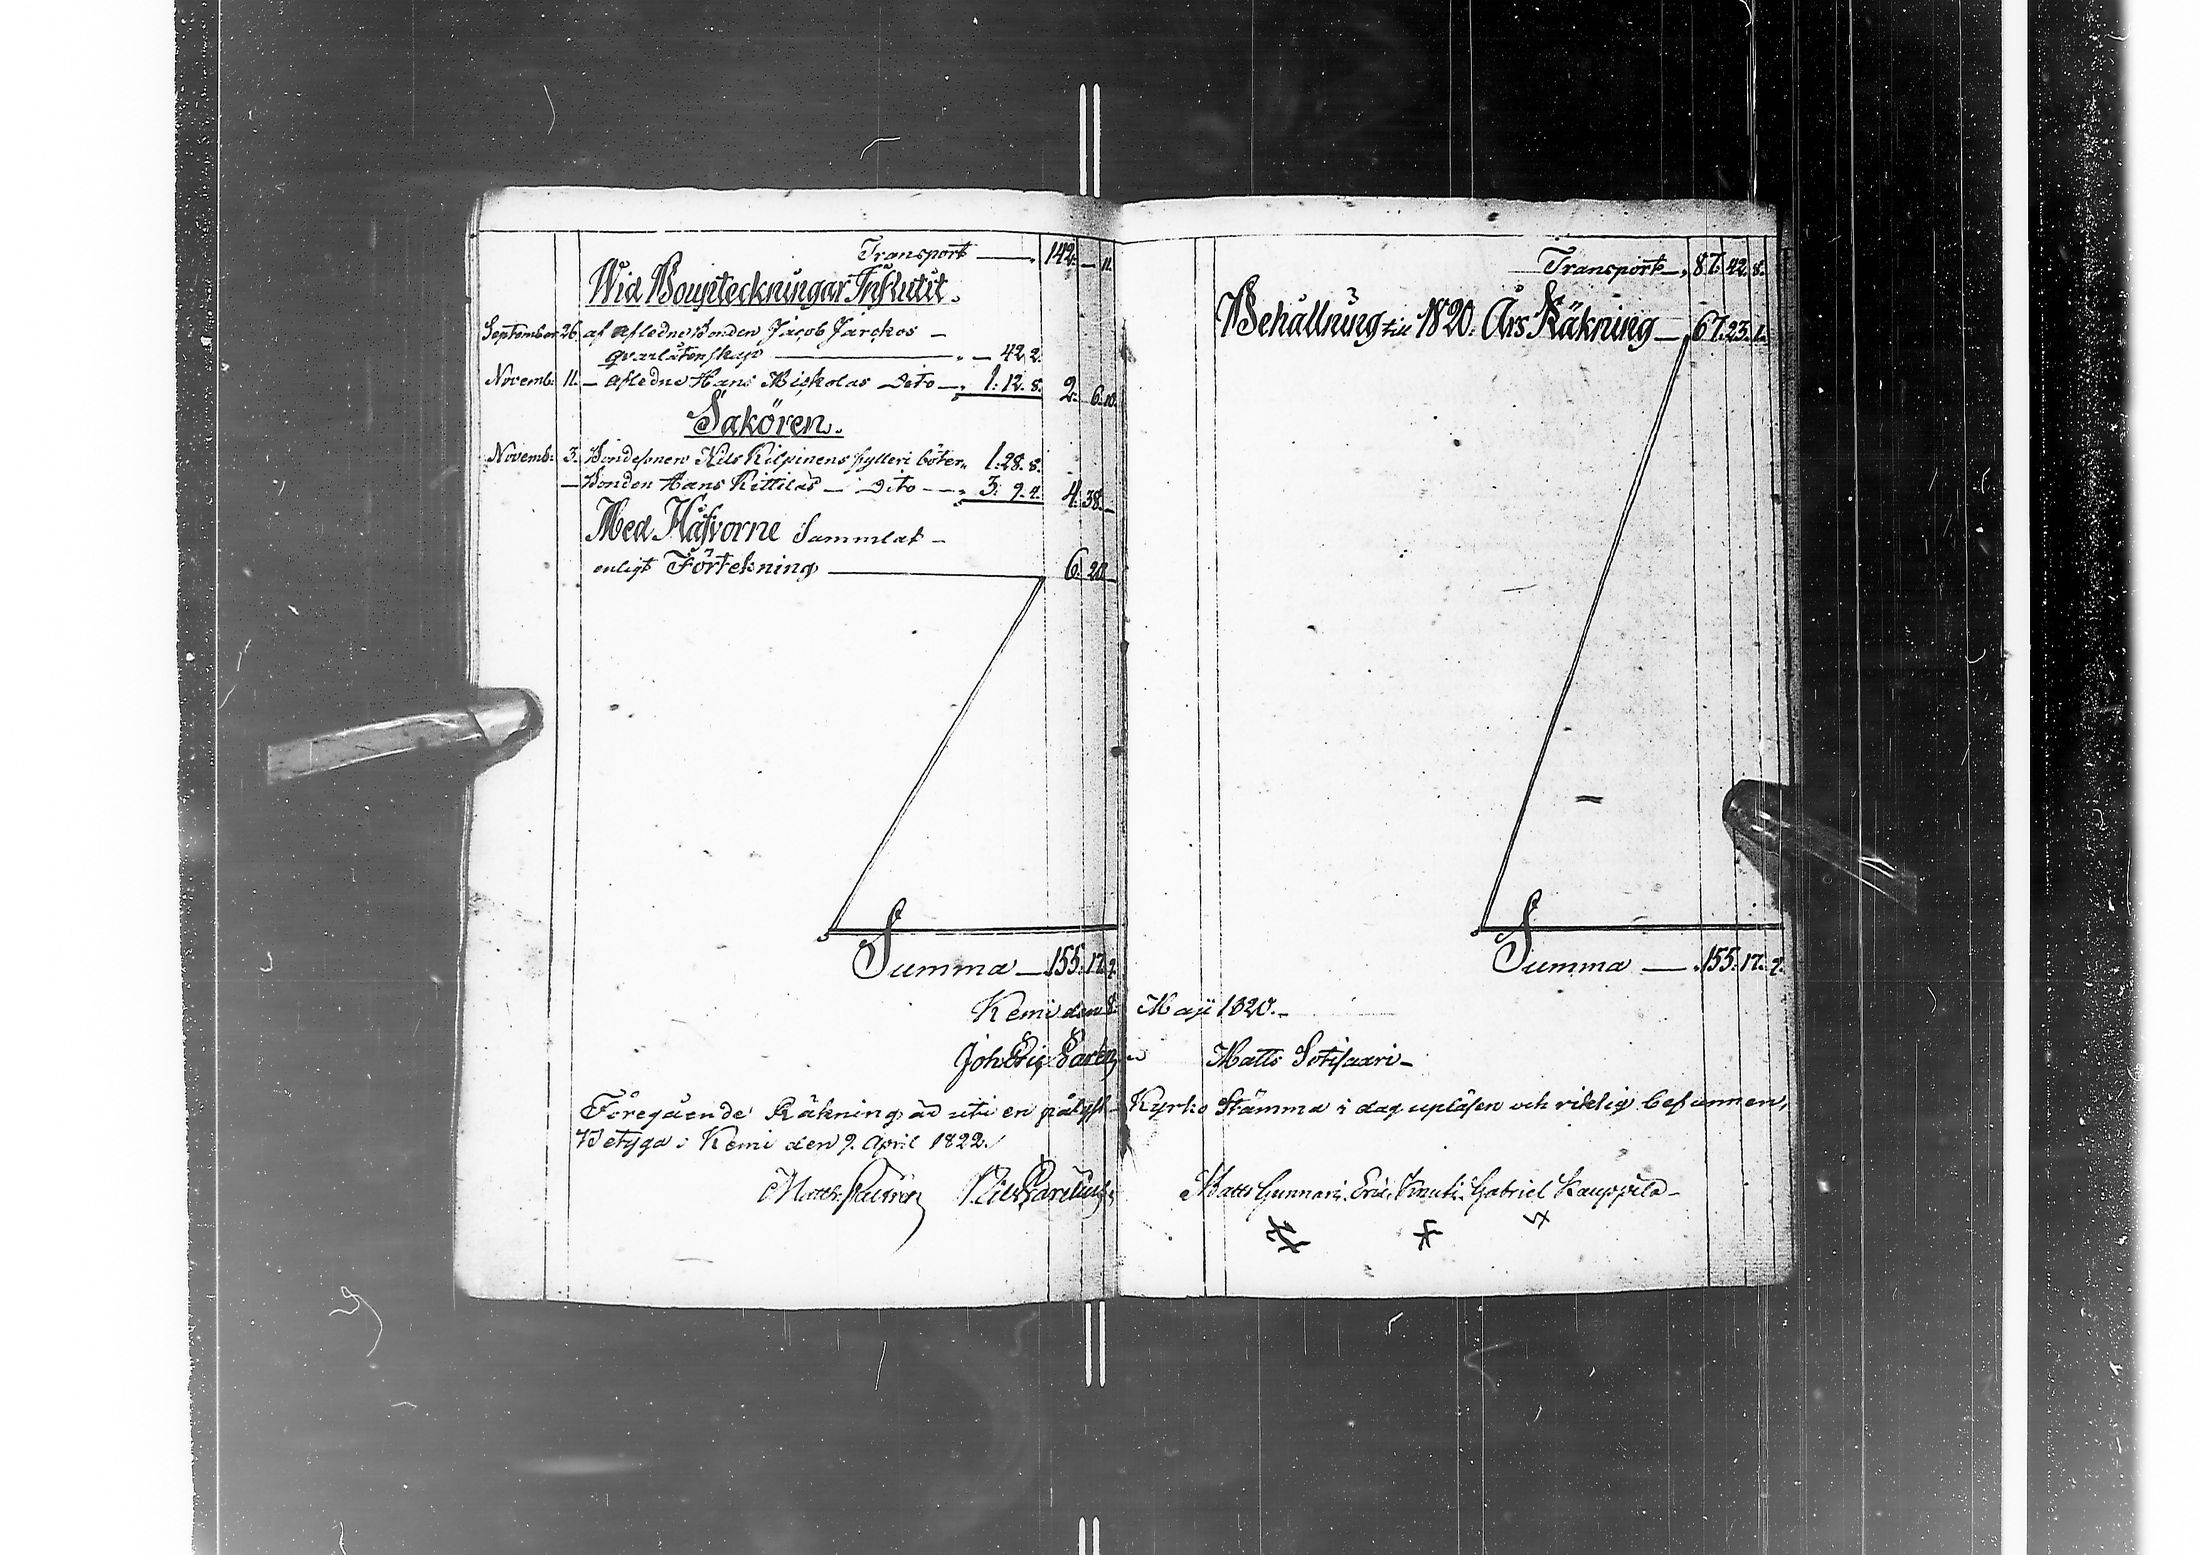 Transport — 142. — 11.
Wid Boupteckningar Influtit.
September 26. af Afledne Bonden Jacob Jarckos —
qvarlåtenskap — " — 42. 2.
Novemb. 11. — Afledne Hans Miskolas Dito — " 1. 12. 8. 2. 6. 10.
Sakören.
Novemb. 3. Bondesonen Nils Kilpinens fylleri böter " 1. 28. 8.
— Bonden Hans Kittilas — Dito — " 3. 9. 4. 4. 38. —
Med Håfvorne Sammlat —
enligt Förtekning — 6. 20 —
Summa — 155. 17. 9.
Transport — " 87. 42. 8.
Behållning till 1820. Års Räkning — 67. 23. 1.
Summa — 155. 17. 9.
Kemi den 8. Maji 1820. —
Joh. Matts Sotisaari —
Föregående Räkning är uti en pålyst Kyrko Stämma i dag upläsen och riktig befunnen,
Betyga i Kemi den 9. April 1822.
Matts Gunnari. Eric Knuti. Gabriel Kauppila —